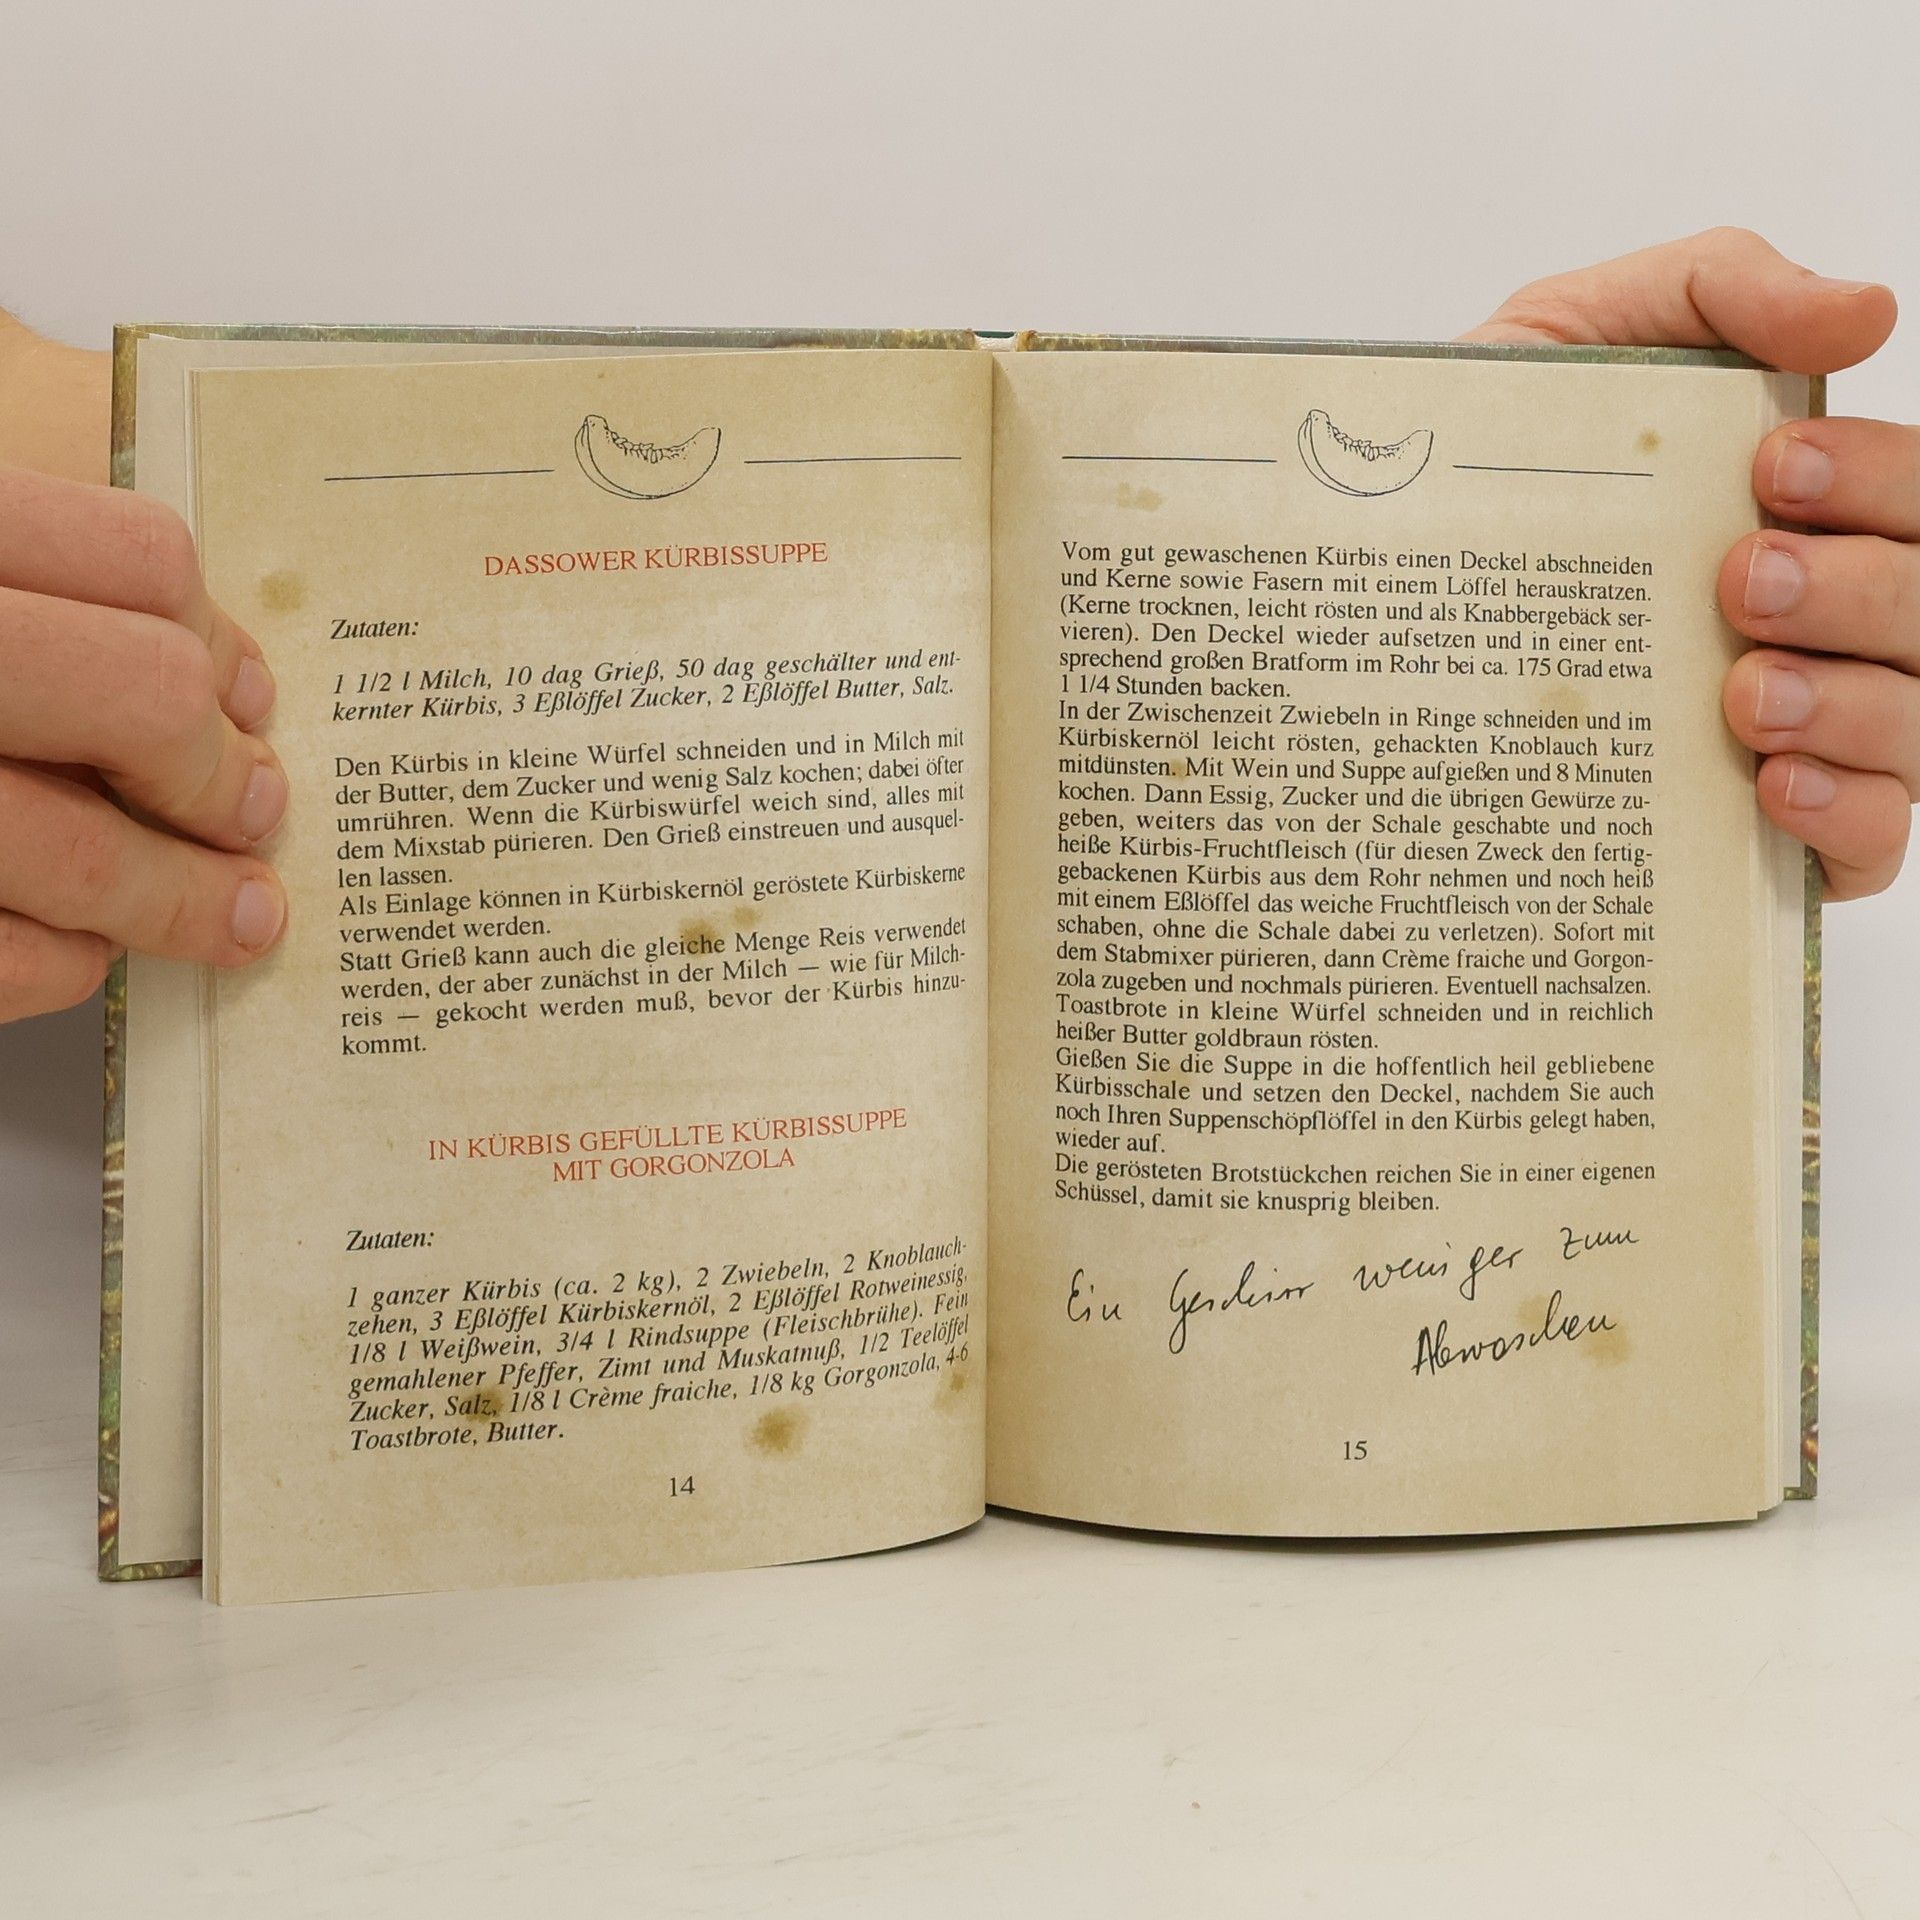 DASSOWER KÜRBISSUPPE
Zutaten:
1 1/2 l Milch, 10 dag Grieß, 50 dag geschälter und ent-
kernter Kürbis, 3 Eßlöffel Zucker, 2 Eßlöffel Butter, Salz.
Den Kürbis in kleine Würfel schneiden und in Milch mit
der Butter, dem Zucker und wenig Salz kochen; dabei öfter
umrühren. Wenn die Kürbiswürfel weich sind, alles mit
dem Mixstab pürieren. Den Grieß einstreuen und ausquel-
len lassen.
Als Einlage können in Kürbiskernöl geröstete Kürbiskerne
verwendet werden.
Statt Grieß kann auch die gleiche Menge Reis verwendet
werden, der aber zunächst in der Milch — wie für Milch-
reis — gekocht werden muß, bevor der Kürbis hinzu-
kommt.
IN KÜRBIS GEFÜLLTE KÜRBISSUPPE
MIT GORGONZOLA
Zutaten:
1 ganzer Kürbis (ca. 2 kg), 2 Zwiebeln, 2 Knoblauch-
zehen, 3 Eßlöffel Kürbiskernöl, 2 Eßlöffel Rotweinessig,
1/8 l Weißwein, 3/4 l Rindsuppe (Fleischbrühe). Fein
gemahlener Pfeffer, Zimt und Muskatnuß, 1/2 Teelöffel
Zucker, Salz, 1/8 l Crème fraiche, 1/8 kg Gorgonzola, 4-6
Toastbrote, Butter.
14
Vom gut gewaschenen Kürbis einen Deckel abschneiden
und Kerne sowie Fasern mit einem Löffel herauskratzen.
(Kerne trocknen, leicht rösten und als Knabbergebäck ser-
vieren). Den Deckel wieder aufsetzen und in einer ent-
sprechend großen Bratform im Rohr bei ca. 175 Grad etwa
1 1/4 Stunden backen.
In der Zwischenzeit Zwiebeln in Ringe schneiden und im
Kürbiskernöl leicht rösten, gehackten Knoblauch kurz
mitdünsten. Mit Wein und Suppe aufgießen und 8 Minuten
kochen. Dann Essig, Zucker und die übrigen Gewürze zu-
geben, weiters das von der Schale geschabte und noch
heiße Kürbis-Fruchtfleisch (für diesen Zweck den fertig-
gebackenen Kürbis aus dem Rohr nehmen und noch heiß
mit einem Eßlöffel das weiche Fruchtfleisch von der Schale
schaben, ohne die Schale dabei zu verletzen). Sofort mit
dem Stabmixer pürieren, dann Crème fraiche und Gorgon-
zola zugeben und nochmals pürieren. Eventuell nachsalzen.
Toastbrote in kleine Würfel schneiden und in reichlich
heißer Butter goldbraun rösten.
Gießen Sie die Suppe in die hoffentlich heil gebliebene
Kürbisschale und setzen den Deckel, nachdem Sie auch
noch Ihren Suppenschöpflöffel in den Kürbis gelegt haben,
wieder auf.
Die gerösteten Brotstückchen reichen Sie in einer eigenen
Schüssel, damit sie knusprig bleiben.
Ein Geschirr weniger zum
Abwaschen
15